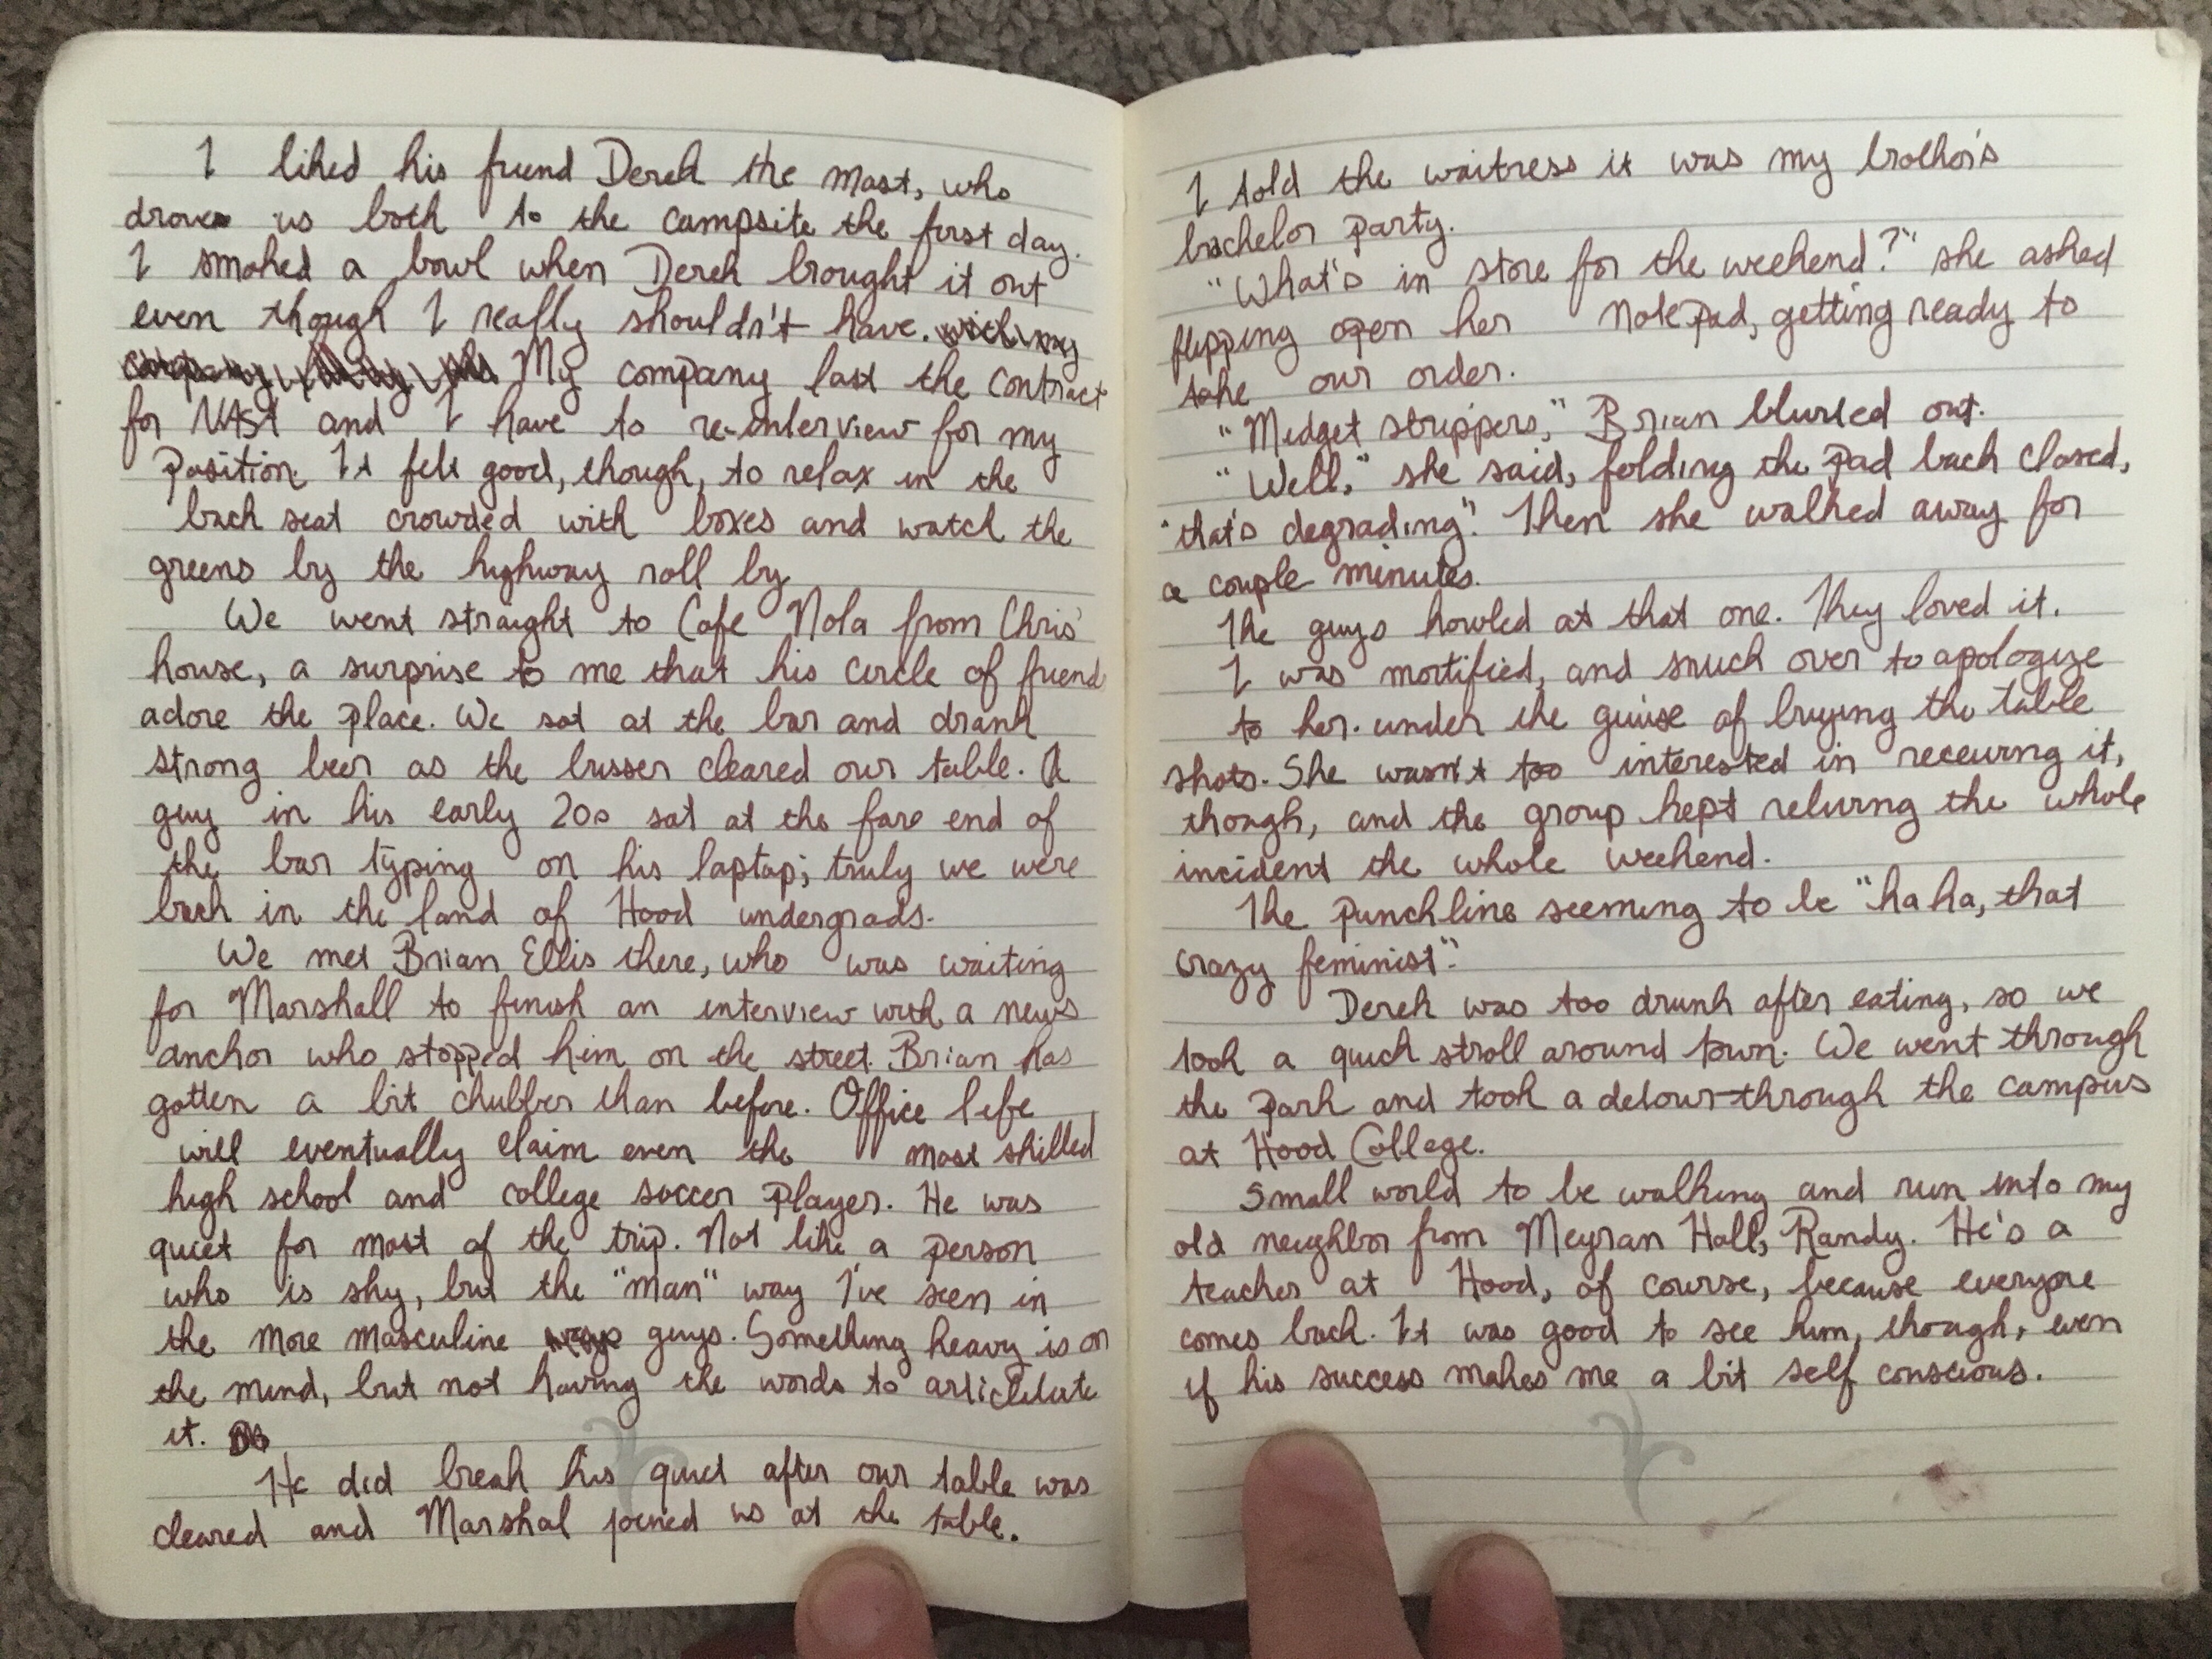 I liked his friend Derek the most, who
drove us both to the campsite the first day.
I smoked a bowl when Derek brought it out
even though I really shouldn't have. with my
company My company lost the contract
for and I have to re-interview for my
position. It felt good, though, to relax in the
back seat crowded with boxes and watch the
greens by the highway roll by
We went straight to Cafe Nola from Chris'
house, a surprise to me that his circle of friend
adore the place. We sat at the bar and drank
strong beer as the busser cleared our table. A
guy in his early 20s sat at the fare end of
the bar typing on his laptop; truly we were
back in the land of Hood undergrads.
We met Brian Ellis there, who was waiting
for Marshall to finish an interview with a news
anchor who stopped him on the street. Brian has
gotten a bit chubber than before. Office life
will eventually claim even the most skilled
high school and college soccer player. He was
quiet for most of the trip. Not like a person
who is shy, but the "man" way I've seen in
the more masculine guys. Something heavy is on
the mind, but not having the words to articulate
it.
He did break his quiet after our table was
cleared and Marshal joined us at the table.
I told the waitress it was my brother's
bachelor party.
"What's in store for the weekend?" she asked
flipping open her notepad, getting ready to
take our order.
"Midget strippers," Brian blurted out.
"Well," she said, folding the pad back closed,
"that's degrading". Then she walked away for
a couple minutes.
The guys howled at that one. They loved it.
I was mortified, and snuck over to apologize
to her. under the guise of buying the table
shots. She wasn't too interested in receiving it,
though, and the group kept reliving the whole
incident the whole weekend.
The punchline seeming to be "ha ha, that
crazy feminist".
Derek was too drunk after eating, so we
took a quick stroll around town. We went through
the park and took a detour through the campus
at Hood College.
Small world to be walking and run into my
old neighbor from Meyran Hall, Randy. He's a
teacher at Hood, of course, because everyone
comes back. It was good to see him, though, even
if his success makes me a bit self conscious.